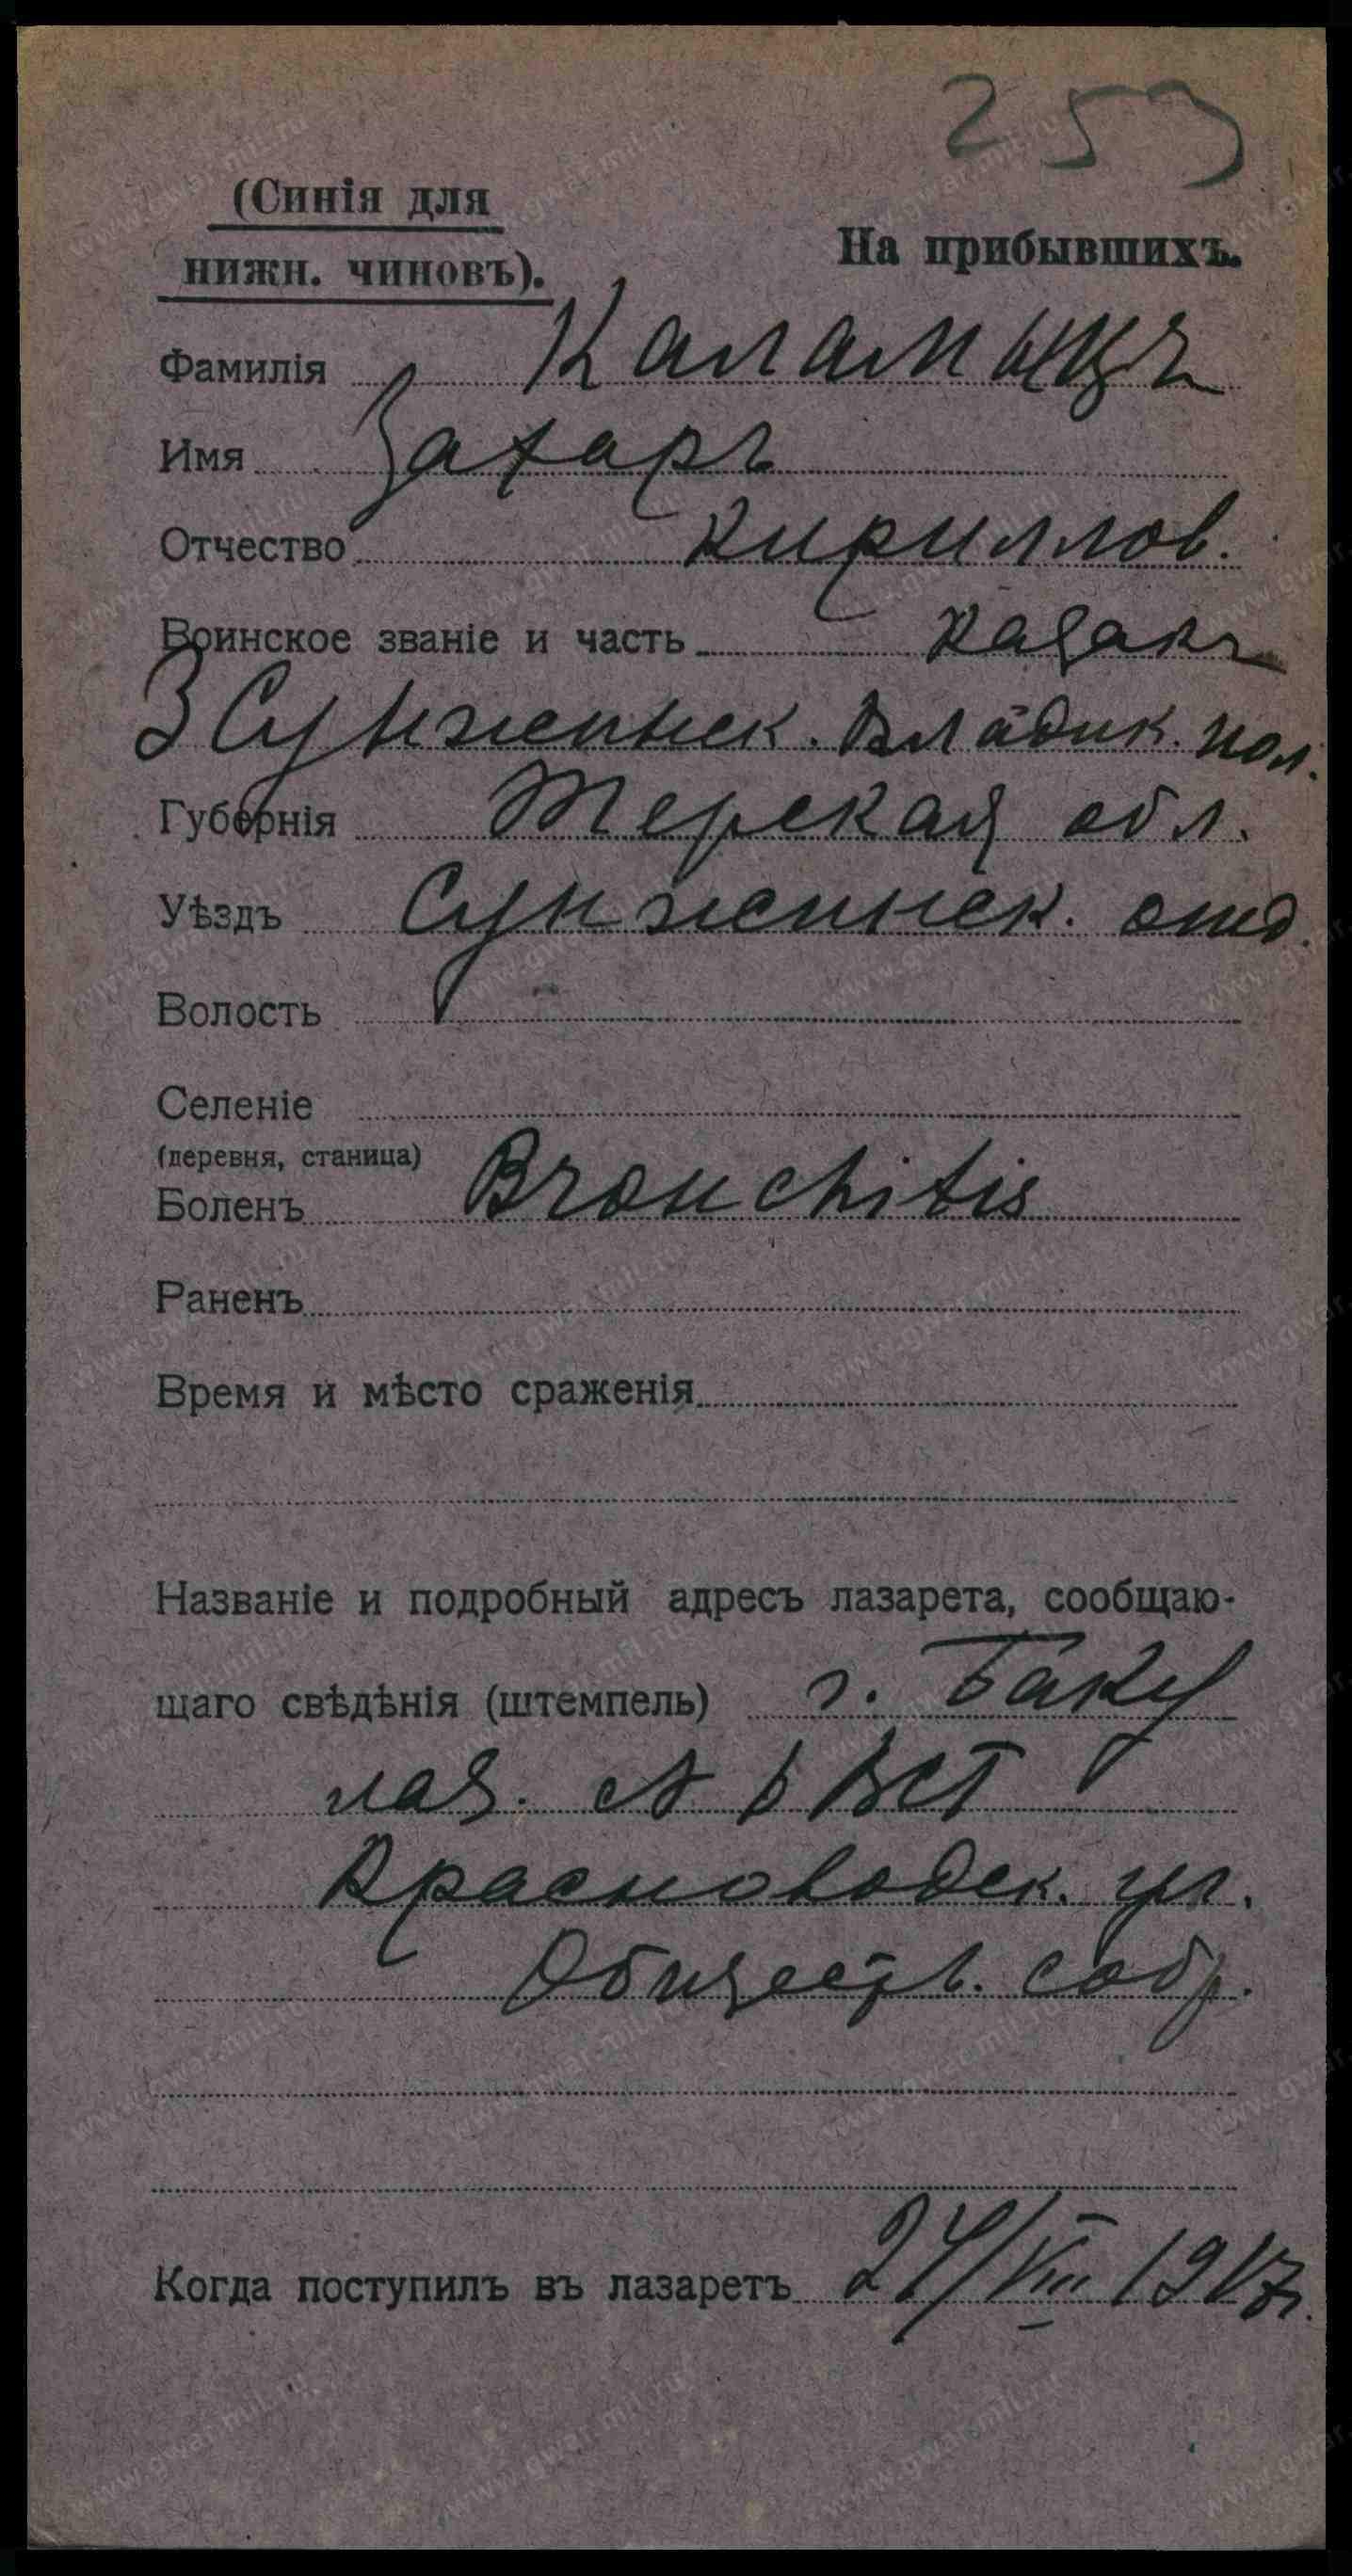 253
(Синія для
нижн. чиновъ).
На прибывшихъ.
Фамилія Каламыцъ
Имя Захаръ
Отчество Кириллов.
Воинское званіе и часть Казакъ
3 Сунженск. Владик. пол.
Губернія Терская обл.
Уѣздъ Сунженск. отд.
Волость
Селеніе
(деревня, станица)
Боленъ Bronchitis
Раненъ
Время и мѣсто сраженія
Названіе и подробный адресъ лазарета, сообщаю-
щаго свѣдѣнія (штемпель) г. Баку
лаз. № 6 ВСГ
Красноводск. ул.
Обществ. собр.
Когда поступилъ въ лазаретъ 24/VIII 1917г.